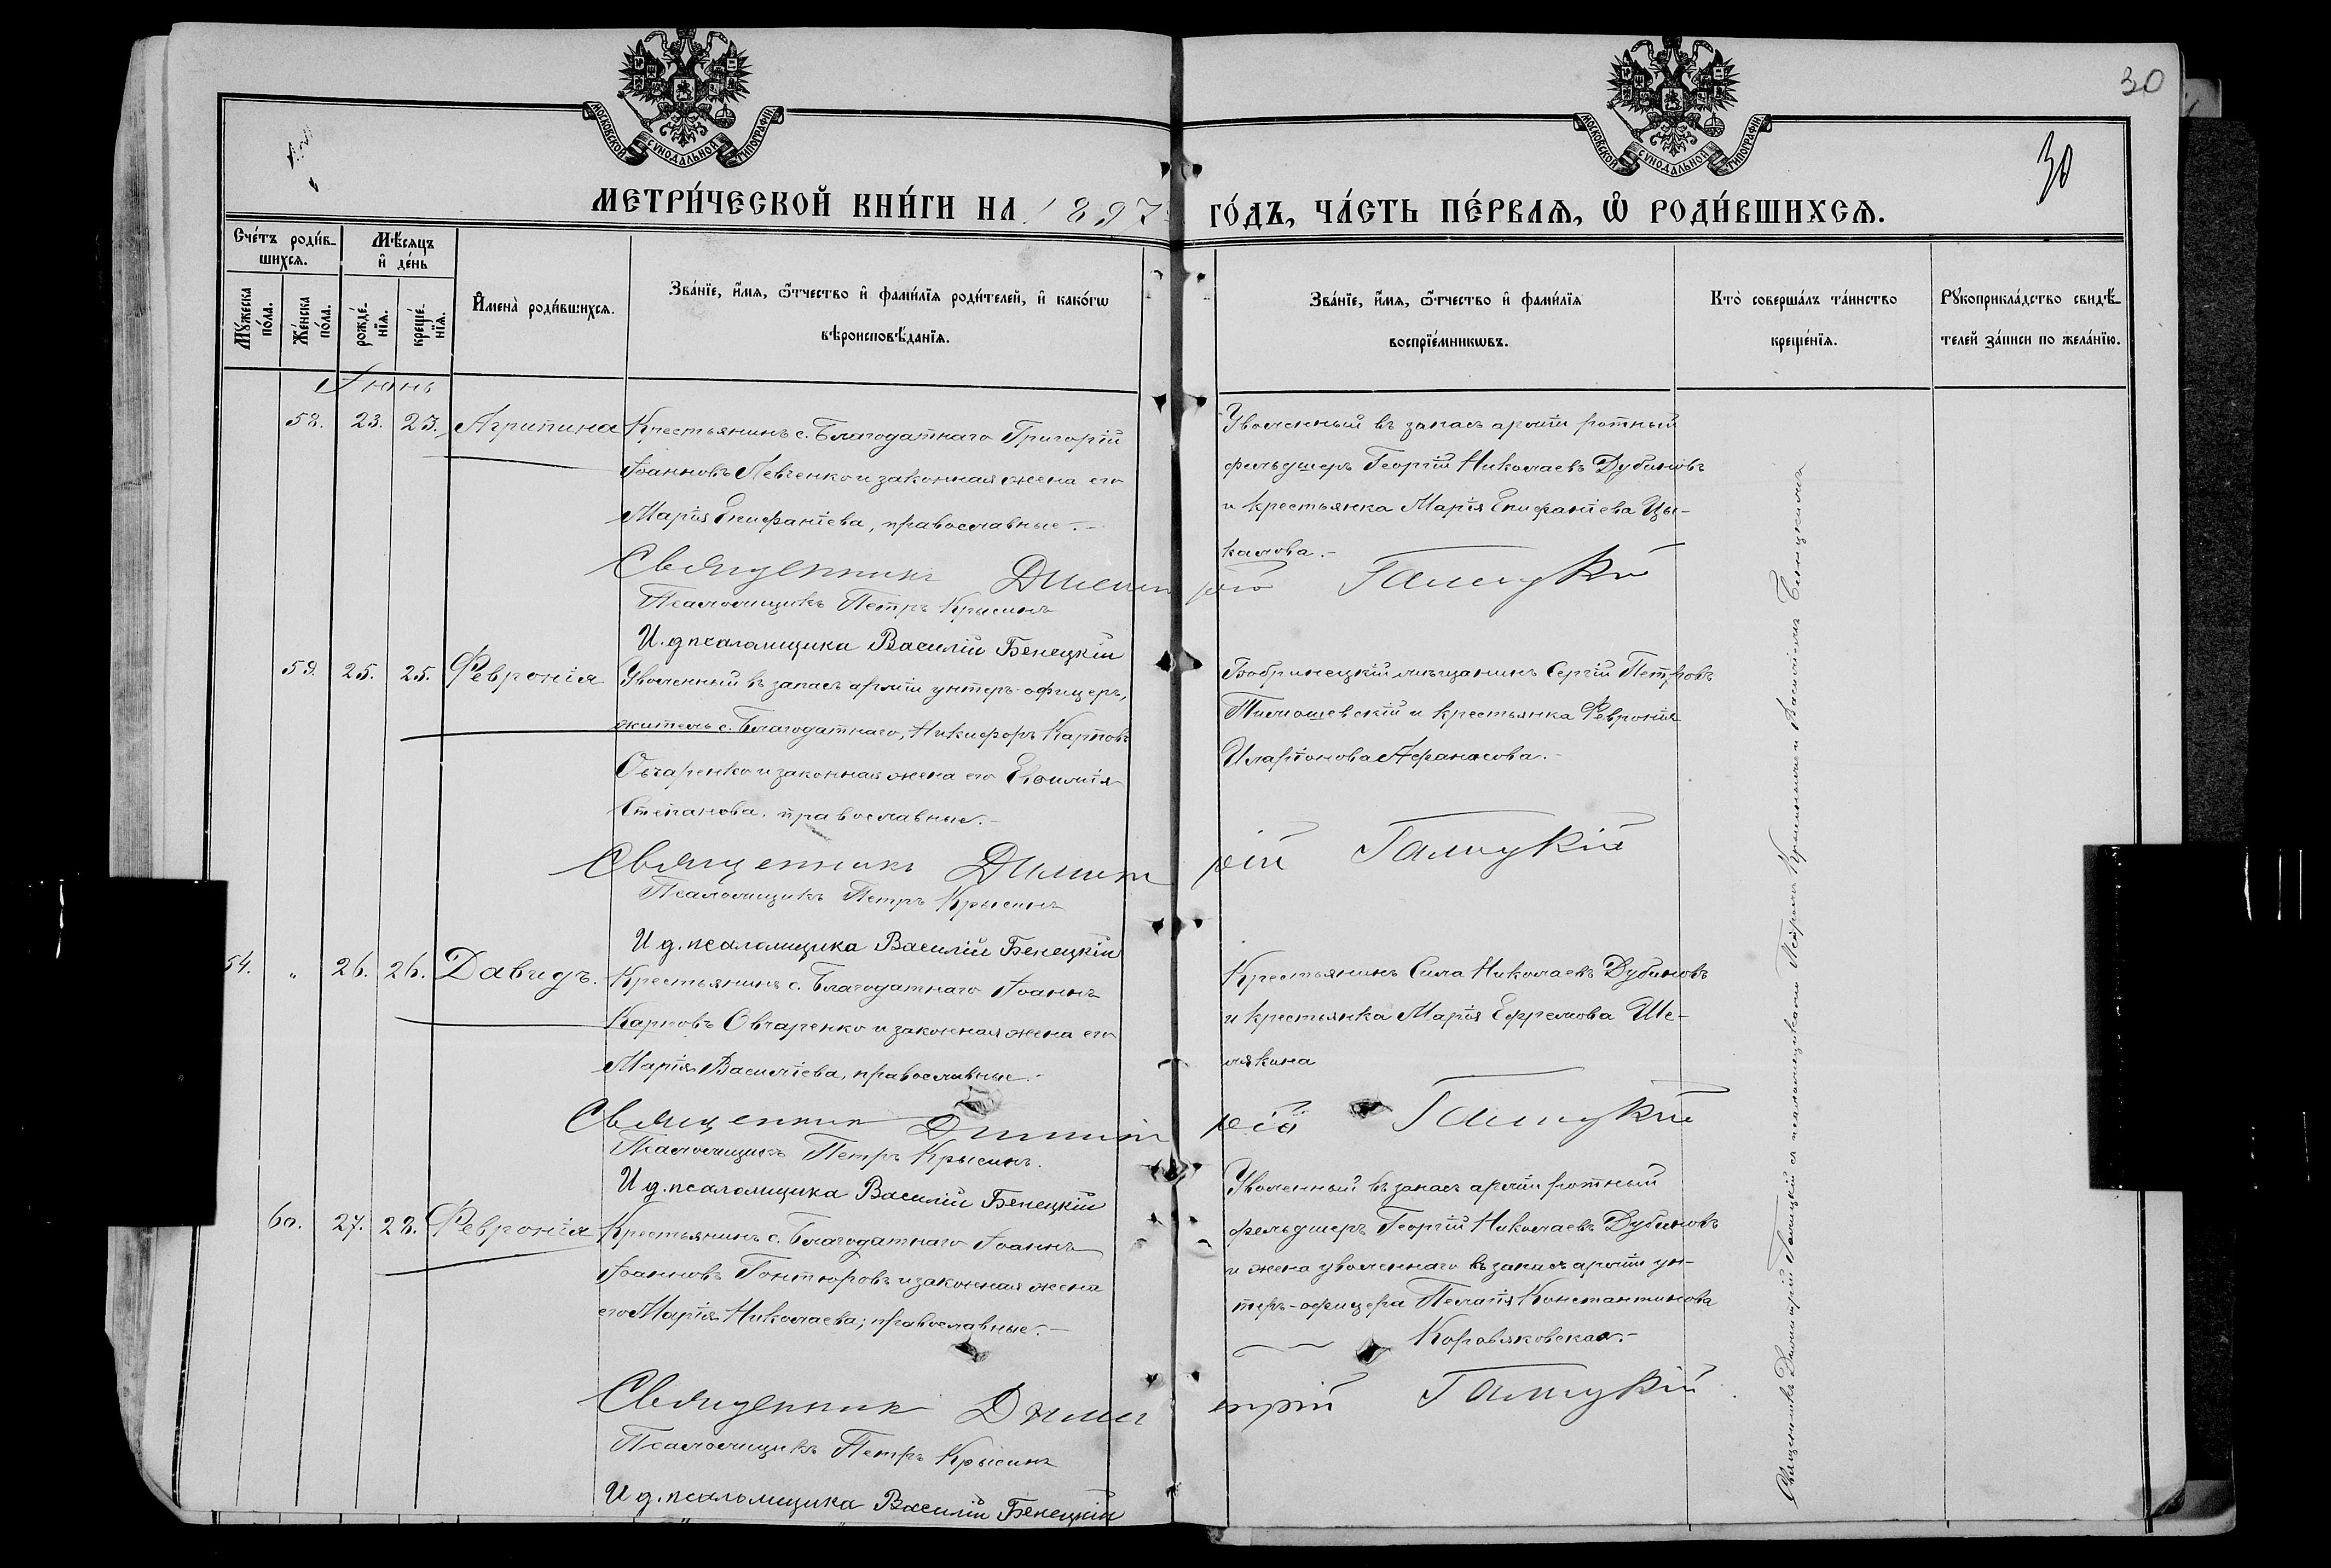 МОСКОВСКОЙ СѴНОДАЛЬНОЙ ТИПОГРАФІИ.
МОСКОВСКОЙ СѴНОДАЛЬНОЙ ТИПОГРАФІИ.
30
30
МЕТРИ́ЧЕСКОЙ КНИ́ГИ НА 1897 ГО́ДЪ, ЧА́СТЬ ПЕ́РВАѦ, Ѽ РОДИ́ВШИХСѦ.
Сче́тъ роди́в-
шихсѧ.
Мѣ́сѧцъ
и҆ де́нь
Мꙋ́жеска
по́ла.
Же́нска
по́ла.
рожде́-
нїѧ.
креще́-
нїѧ.
И҆мена̀ роди́вшихсѧ.
Зва́нїе, и҆́мѧ, ѻ҆́тчество и҆ фами́лїѧ роди́телей, и҆ како́гѡ
вѣроисповѣ́данїѧ.
Зва́нїе, и҆́мѧ, ѻ҆́тчество и҆ фами́лїѧ
воспрїе́мникѡвъ.
Кто̀ соверша́лъ та́инство
креще́нїѧ.
Рꙋкоприкла́дство свидѣ́-
телей за́писи по жела́нїю.
Іюнь
58. 23. 23. Агрипина
Крестьянинъ с. Благодатнаго Григорій
Іоанновъ Левченко и законная жена его
Марія Епифаніева, православные.-
Уволенный въ запасъ арміи ротный
фельдшеръ Георгій Николаевъ Дубиновъ
и крестьянка Марія Епифаніева Цы-
калова.-
Священникъ Димитрій Галицкій
Псаломщикъ Петръ Крысинъ
И. д псаломщика Василій Бенецкій
59. 25. 25. Февронія
Уволенный въ запасъ арміи унтеръ-офицеръ,
житель с. Благодатнаго, Никифоръ Карповъ
Овчаренко и законная жена его Евфимія
Степанова, православные.-
Бобринецкій мѣщанинъ Сергій Петровъ
Тимошевскій и крестьянка Февронія
Иларіонова Афанасова.-
Священникъ Димитрій Галицкій
Псаломщикъ Петръ Крысинъ
И д. псаломщика Василій Бенецкій
54. " 26. 26. Давидъ.
Крестьянинъ с. Благодатнаго Іоаннъ
Карповъ Овчаренко и законная жена его
Марія Василіева, православные.-
Крестьянинъ Сила Николаевъ Дубиновъ
и крестьянка Марія Ефремова Ше-
лякина
Священникъ Димитрій Галицкій
Псаломщикъ Петръ Крысинъ.
И д. псаломщика Василій Бенецкій
60. 27. 28. Февронія
Крестьянинъ с. Благодатнаго Іоаннъ
Іоанновъ Гонтюровъ и законная жена
его Марія Николаева; православные.-
Уволенный въ запасъ арміи ротный
фельдшеръ Георгій Николаевъ Дубиновъ
и жена уволеннаго въ запасъ арміи ун-
теръ-офицера Пелагія Константинова
Коровяковская.-
Священникъ Димитрій Галицкій
Псаломщикъ Петръ Крысинъ
И д. псаломщика Василій Бенецкій
Священникъ Димитрій Галицкій съ псаломщикомъ Петромъ Крысинымъ и Василіемъ Бенецкимъ